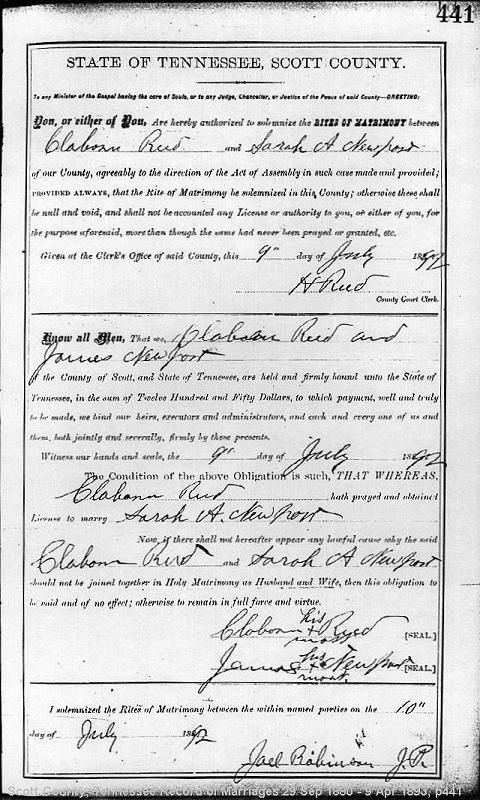 441
STATE OF TENNESSEE, SCOTT COUNTY.
To any Minister of the Gospel having the care of Souls, or to any Judge, Chancellor, or Justice of the Peace of said County—GREETING:
You, or either of You, Are hereby authorized to solemnize the RITES OF MATRIMONY between
Claborn Reed and Sarah A Newport
of our County, agreeably to the direction of the Act of Assembly in such case made and provided;
PROVIDED ALWAYS, that the Rite of Matrimony be solemnized in this County; otherwise these shall
be null and void, and shall not be accounted any License or authority to you, or either of you, for
the purpose aforesaid, more than though the same had never been prayed or granted, etc.
Given at the Clerk's Office of said County, this 9" day of July 1892
H Reed
County Court Clerk.
Know all Men, That we, Claborn Reed and
James Newport
of the County of Scott, and State of Tennessee, are held and firmly bound unto the State of
Tennessee, in the sum of Twelve Hundred and Fifty Dollars, to which payment, well and truly
to be made, we bind our heirs, executors and administrators, and each and every one of us and
them, both jointly and severally, firmly by these presents.
Witness our hands and seals, the 9" day of July 1892
The Condition of the above Obligation is such, THAT WHEREAS,
Claborn Reed hath prayed and obtained
License to marry Sarah A. Newport
Now, if there shall not hereafter appear any lawful cause why the said
Claborn Reed and Sarah A Newport
should not be joined together in Holy Matrimony as Husband and Wife, then this obligation to
be void and of no effect; otherwise to remain in full force and virtue.
his
Claborn + Reed [SEAL.]
mark
his
James + Newport [SEAL.]
mark.
I solemnized the Rites of Matrimony between the within named parties on the 10"
day of July 1892
Joel Robinson J.P.
Scott County, Tennessee Record of Marriages 29 Sep 1880 - 9 Apr 1893, p441